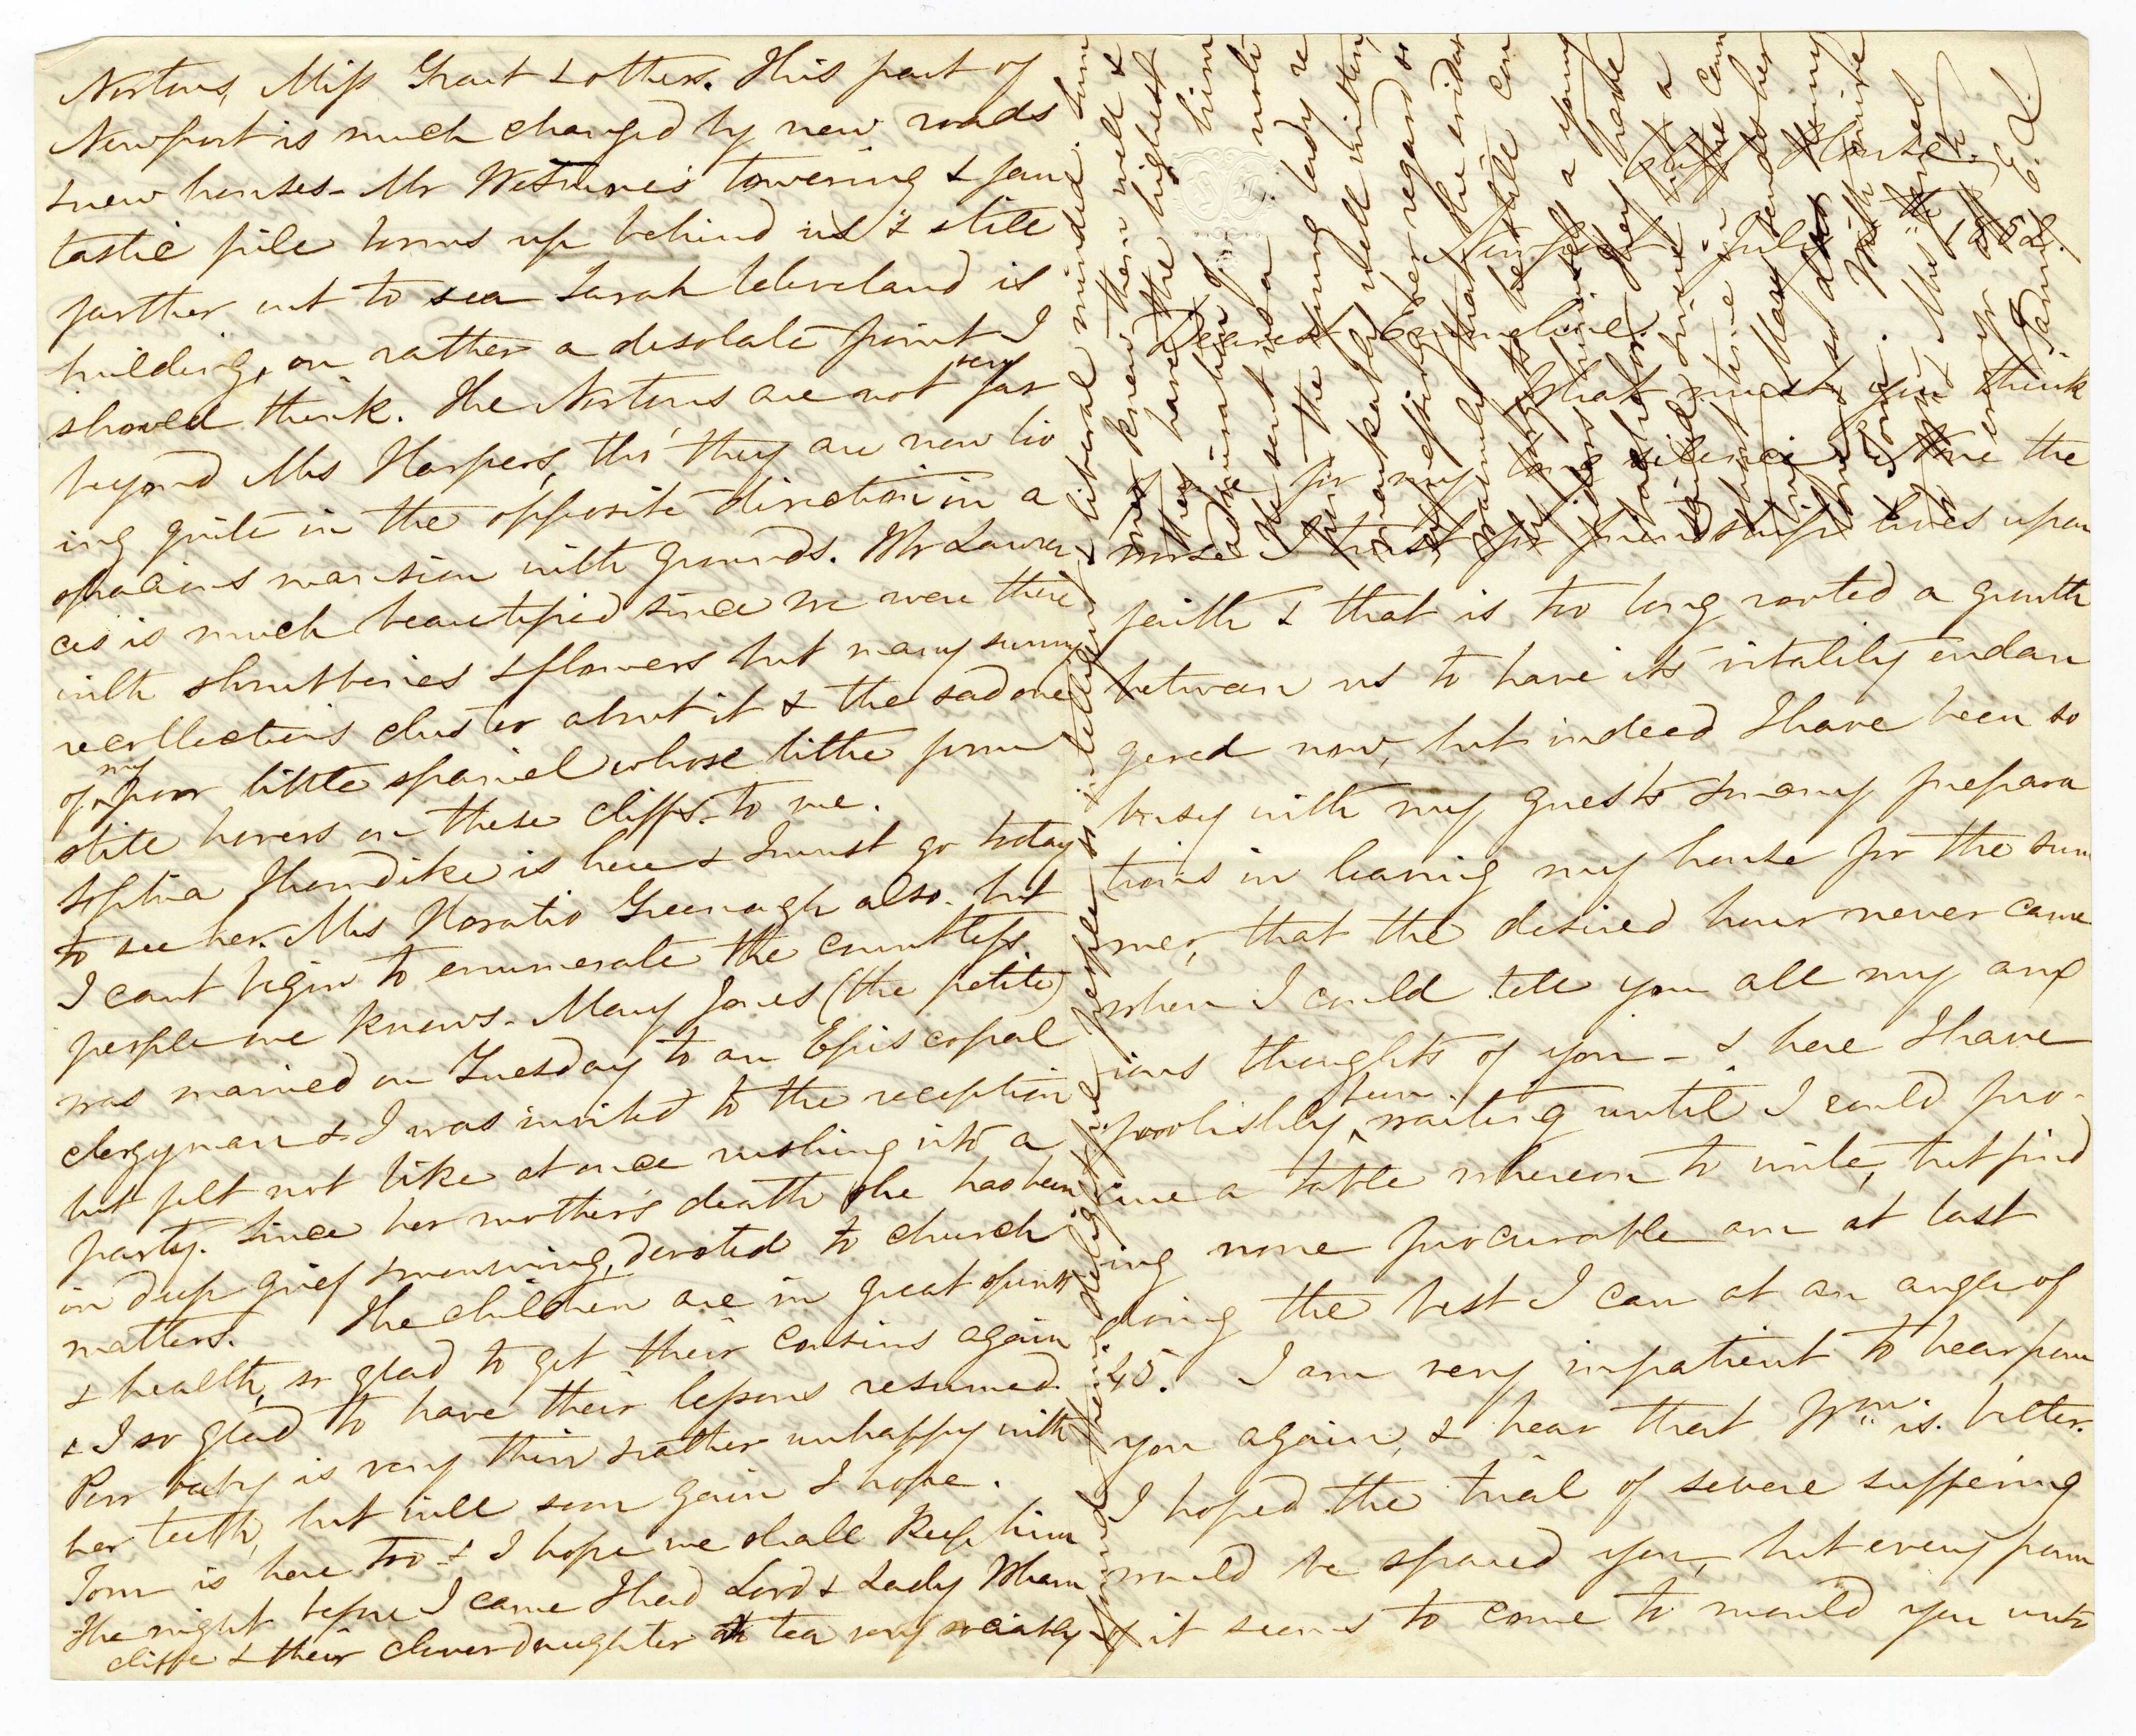 Cliff House.
Newport July 1852.
Dearest Emmeline.
What must you think
of me for my long silence. None the
worse I trust for friendship lives upon
faith & that is too long rooted a growth
between us to have its vitality endan
gered now, but indeed I have been so
busy with my guests & many prepara
tions in leaving my house for the sum
mer, that the desired hour never came
when I could tell you all my anx
ious thoughts of you – & here I have
foolishly been waiting until I could pro-
cure a table whereon to write, but find
ing none procurable am at last
doing the best I can at an angle of
45. I am very impatient to hear from
you again, & hear that Wm is better.
I hoped the trial of severe suffering
would be spared you, but every form
of it seems to come to mould you unto
Nortons, Miss Grant & others. This part of
Newport is much changed by new roads
& new houses – Mr Wetmore's towering & fan
tastic pile looms up behind us & still
farther out to sea Sarah Cleveland is
building, on rather a desolate point I
should think. The Nortons are not very far
beyond Mrs Harpers, tho' they are now liv
ing quite in the opposite direction in a
spacious mansion with grounds. Mr Lawren
ces is much beautified since we were there
with shrubberies & flowers but many sunny
recollections cluster about it & the sad one
of my poor little spaniel whose lithe form
still hovers on these cliffs to me.
Sophia Thorndike is here & I must go today
to see her. Mrs Horatio Greenough also – but
I cant begin to enumerate the countless
people one knows – Mary Jones (the petite)
was married on Tuesday to an Episcopal
clergyman & I was invited to the reception
but felt not like at once rushing into a
party. Since her mother's death she has been
in deep grief & mourning, devoted to church
matters. The children are in great spirits
& health, so glad to get their cousins again
& I so glad to have their lessons resumed.
Poor baby is very thin & rather unhappy with
her teeth, but will soon gain I hope.
Tom is here too & I hope we shall keep him
The night before I came I had Lord & Lady Wharn
cliffe & their clever daughter to tea very sociably
& found them delightful people so intelligent & liberal minded. Sum
ner knew them well &
they have the highest
admiration of him
He sent us a note
from the young lady re
markably well written
expressing her regard